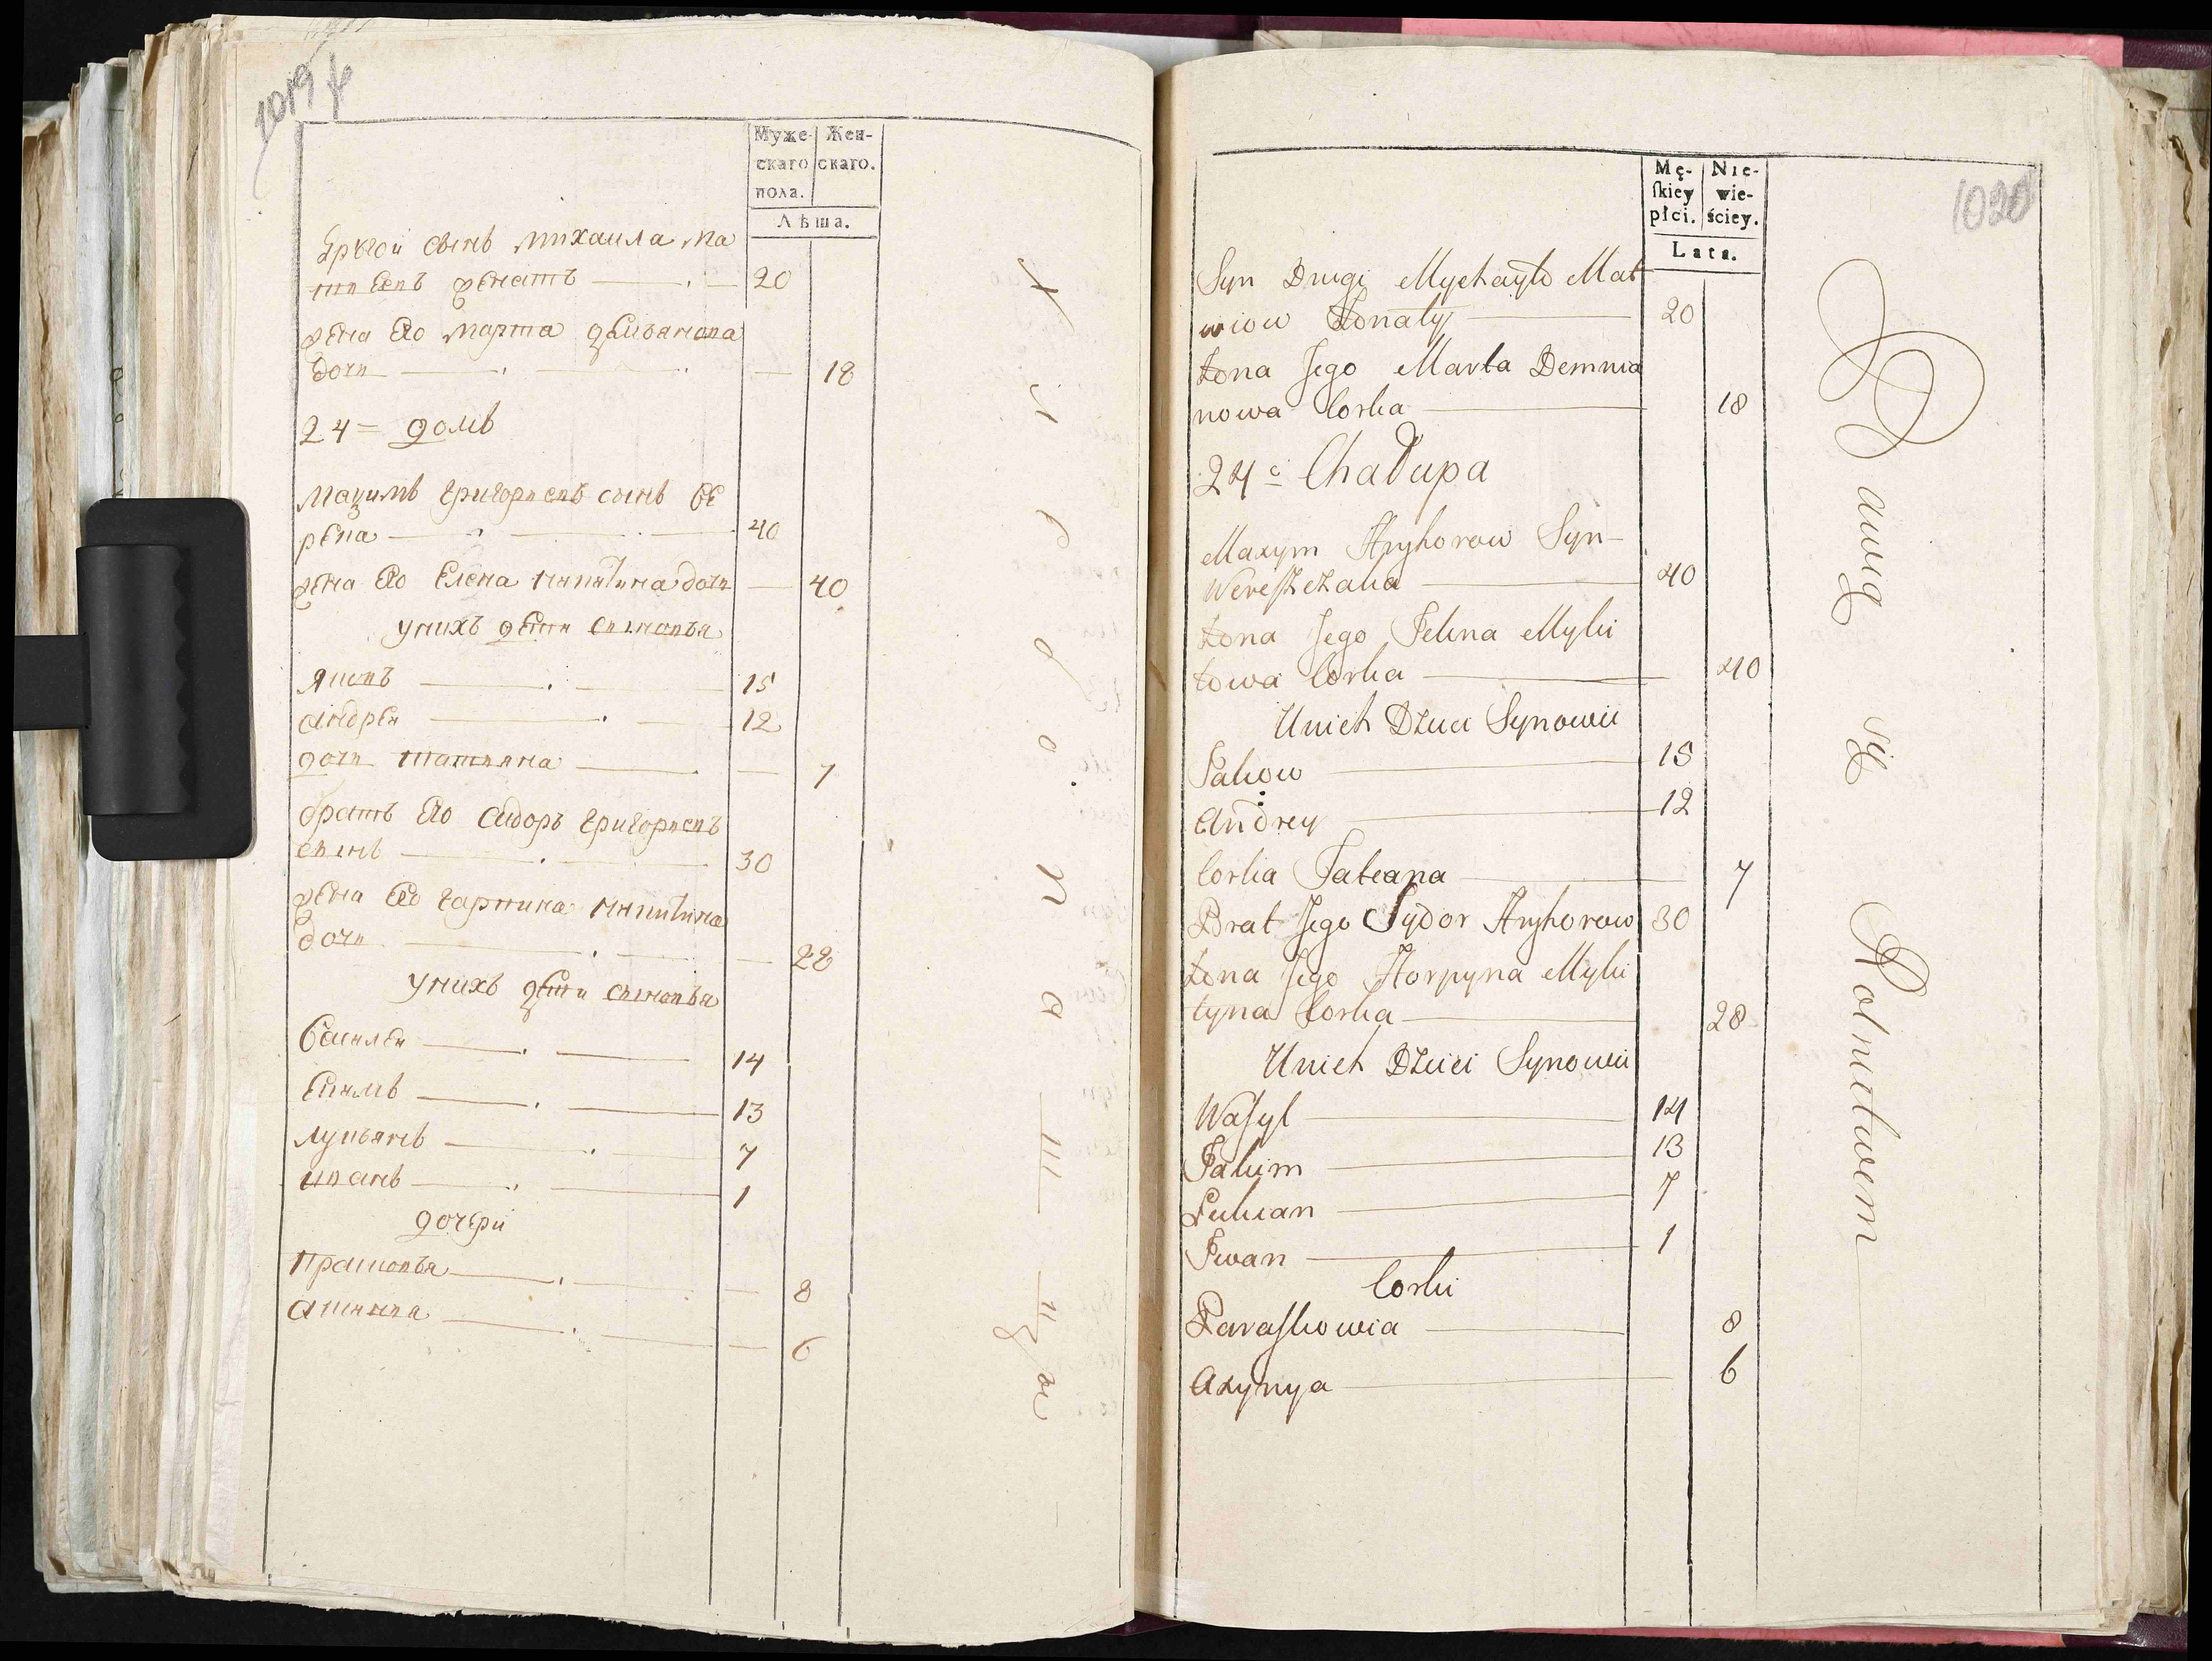 1019
Муже-
скаго
пола.
Жен-
скаго.
Лѣта.
другой сынъ михаила ма
твѣевъ женатъ 20
жена его марта демьянова
дочь 18
24 = домъ
максимъ григориевъ сынъ ве
рещака 40
жена его елена никитина дочь 40
у нихъ дети сыновья
яковъ 15
андрей 12
дочь татияна 7
братъ его сидоръ григориевъ
сынъ 30
жена его гарпина никитина
дочь 28
у нихъ дети сыновья
василей 14
екимъ 13
лукьянъ 7
иванъ 1
дочери
прасковья 8
аксинья 6
хлебопашцы
1020
Mę-
ſkiey
płci.
Nie-
wie-
ściey.
Lata.
Syn Drugi Mychayło Mat
wiow Żonaty 20
Żona Jego Marta Demnia
nowa Corka 18
24 = Chałupa
Maxym Hryhorow Syn
Wereszczaka 40
Żona Jego Jelena Myki
towa Corka 40
Unich Dzieci Synowie
Jakow 15
Andrey 12
Corka Tateana 7
Brat Jego Sydor Hryhorow 30
Żona Jego Horpyna Myki
tyna Corka 28
Unich Dzieci Synowie
Waſyl 14
Jakim 13
Lukian 7
Iwan 1
Corki
Paraſkowia 8
Axynya 6
Bawią się Rolnictwem